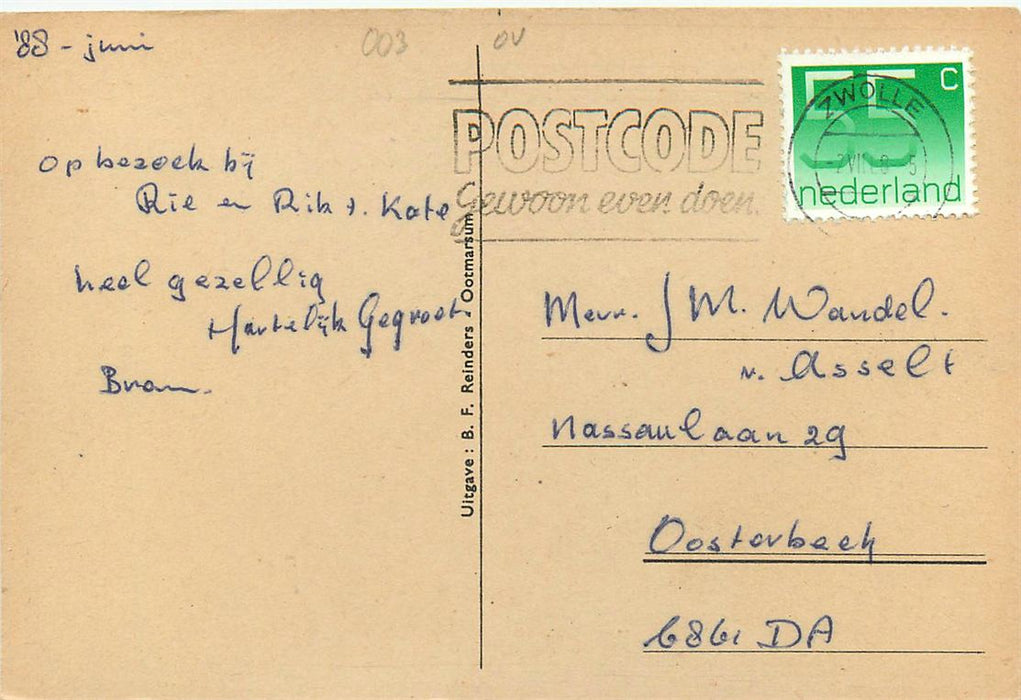 '88 - juni
003
OV
op bezoek bij
Rie en Rik t. Kate
heel gezellig
Hartelijk Gegroet.
Bram.
Uitgave: B. F. Reinders - Ootmarsum
POSTCODE
Gewoon even doen.
55 C
nederland
ZWOLLE
Mevr. J M. Wandel.
v. Asselt
Nassaulaan 29
Oosterbeek
6861 DA